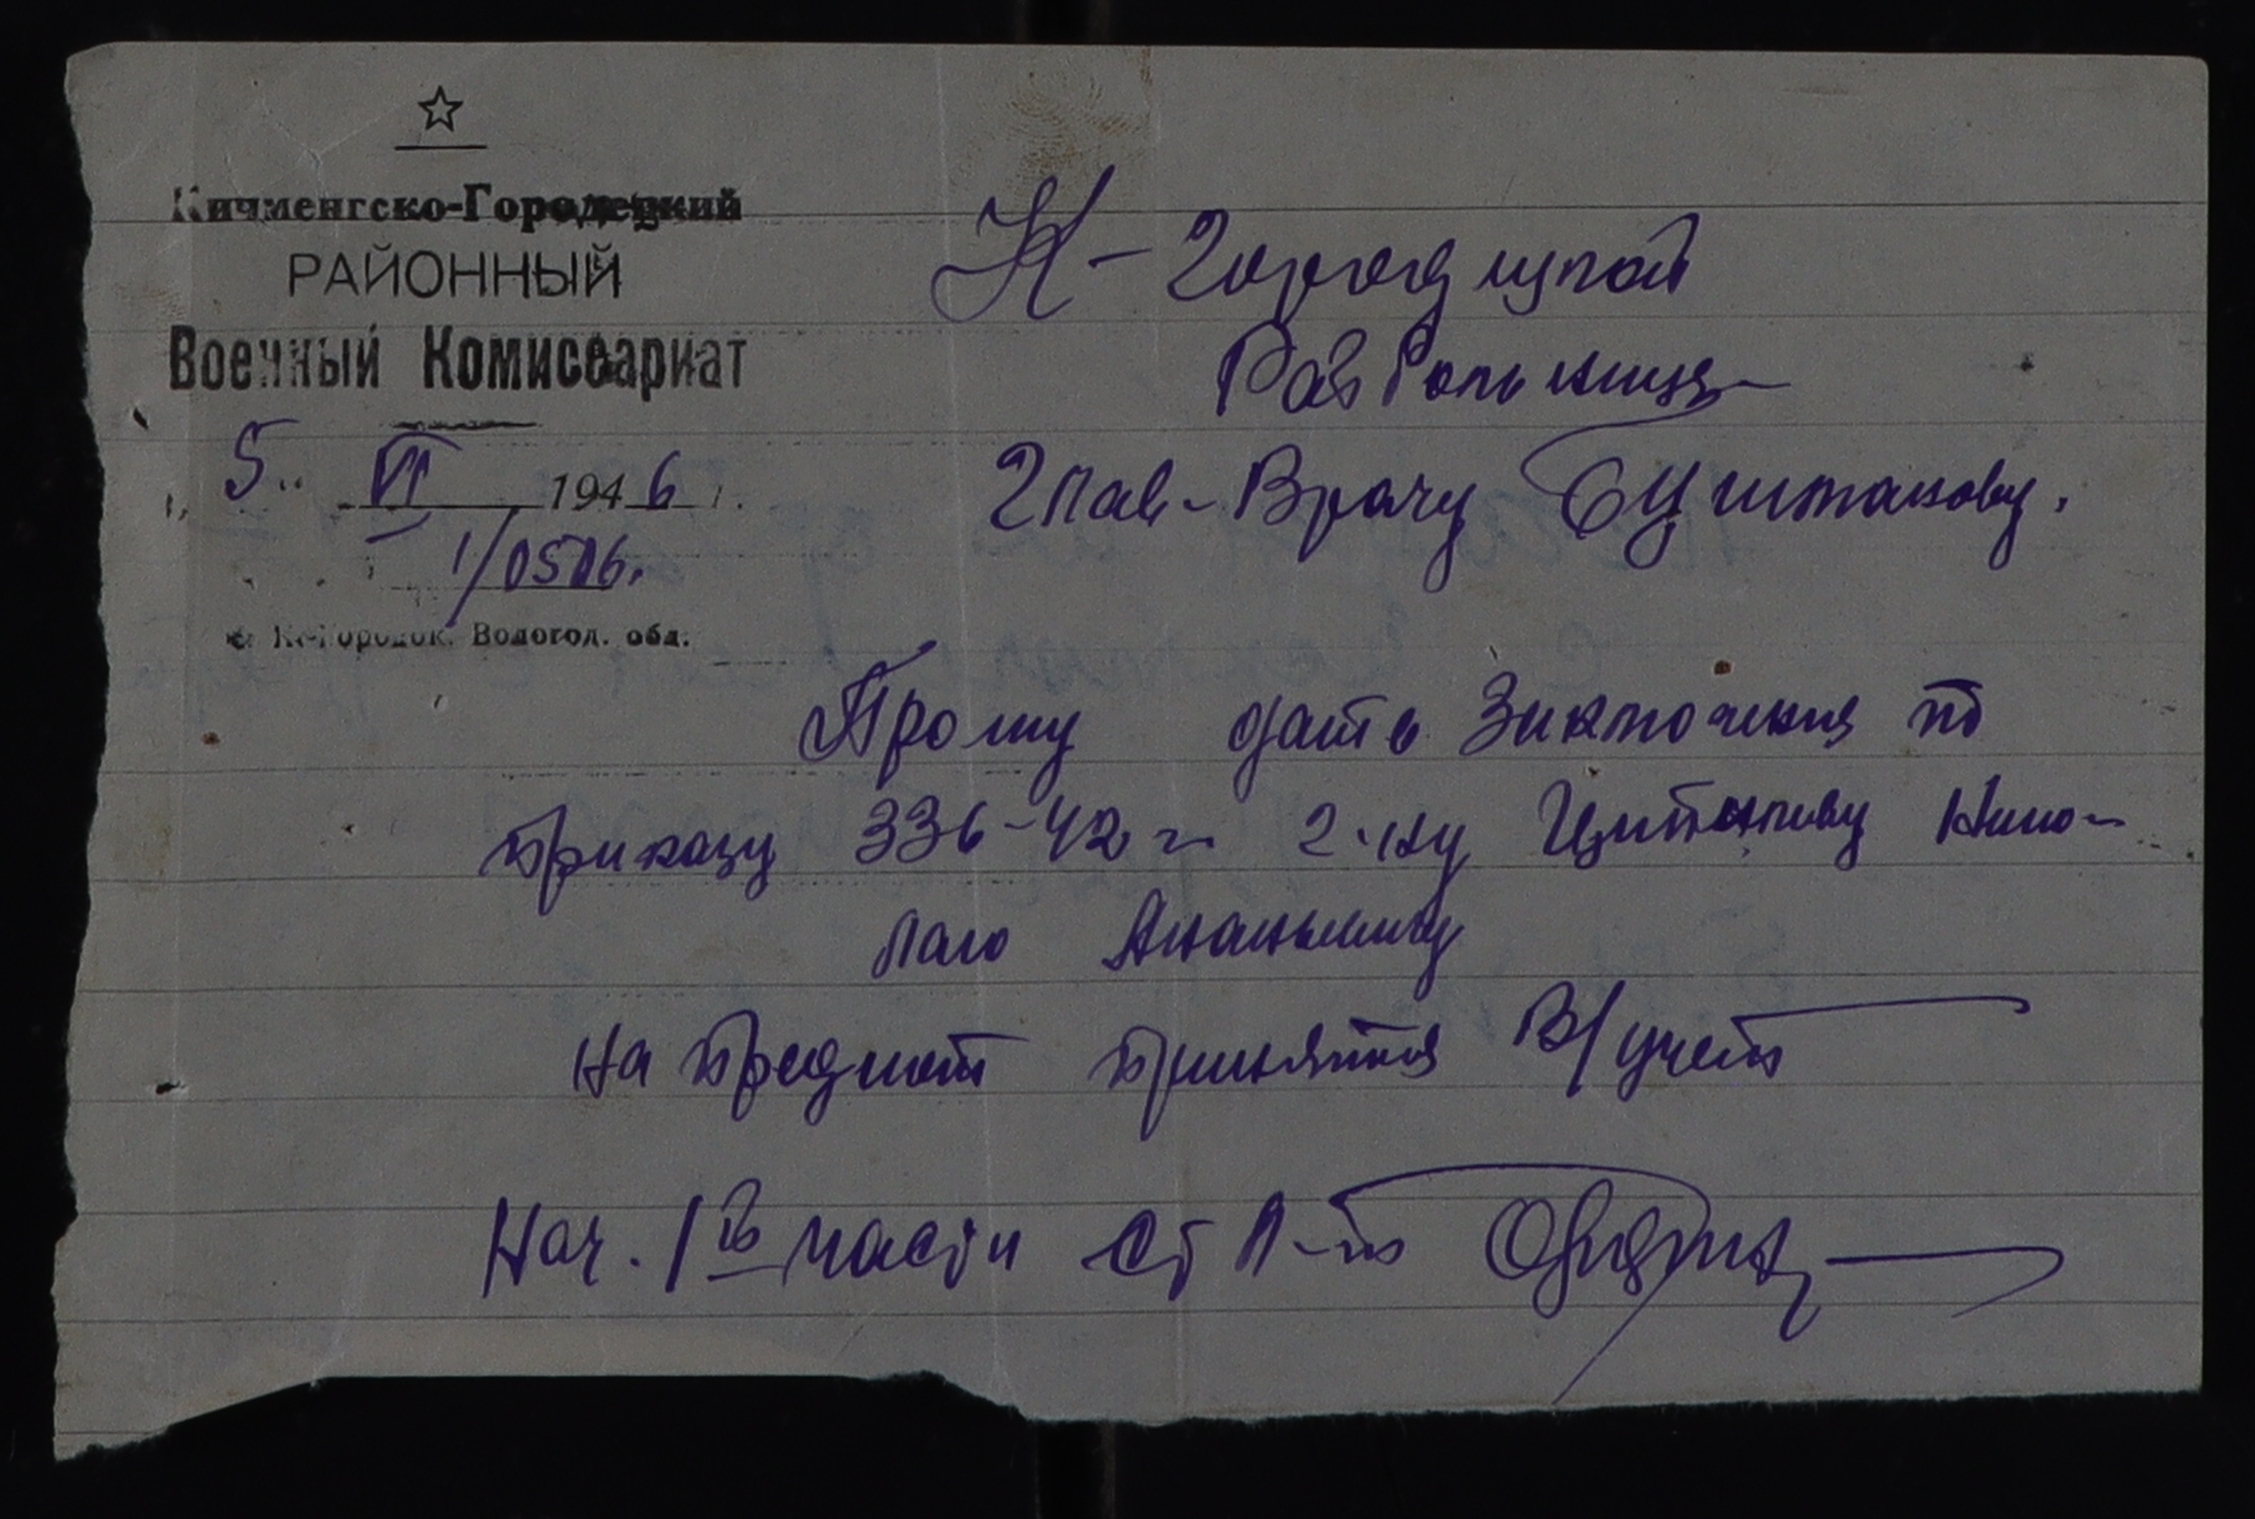 Кичменгско-Городецкий
РАЙОННЫЙ
Военный Комиссариат
„5“ VI 1946 г.
1/0506.
с. К-Городок. Вологод. обл.
К-Городецкой
Райбольница
Глав-Врачу Буштакову.
Прошу дать Заключения по
приказу 336-42 г. г-ну Нико-
лаю Ананьевичу
на предмет принятия В/учет
Нач. 1й части ст л-т